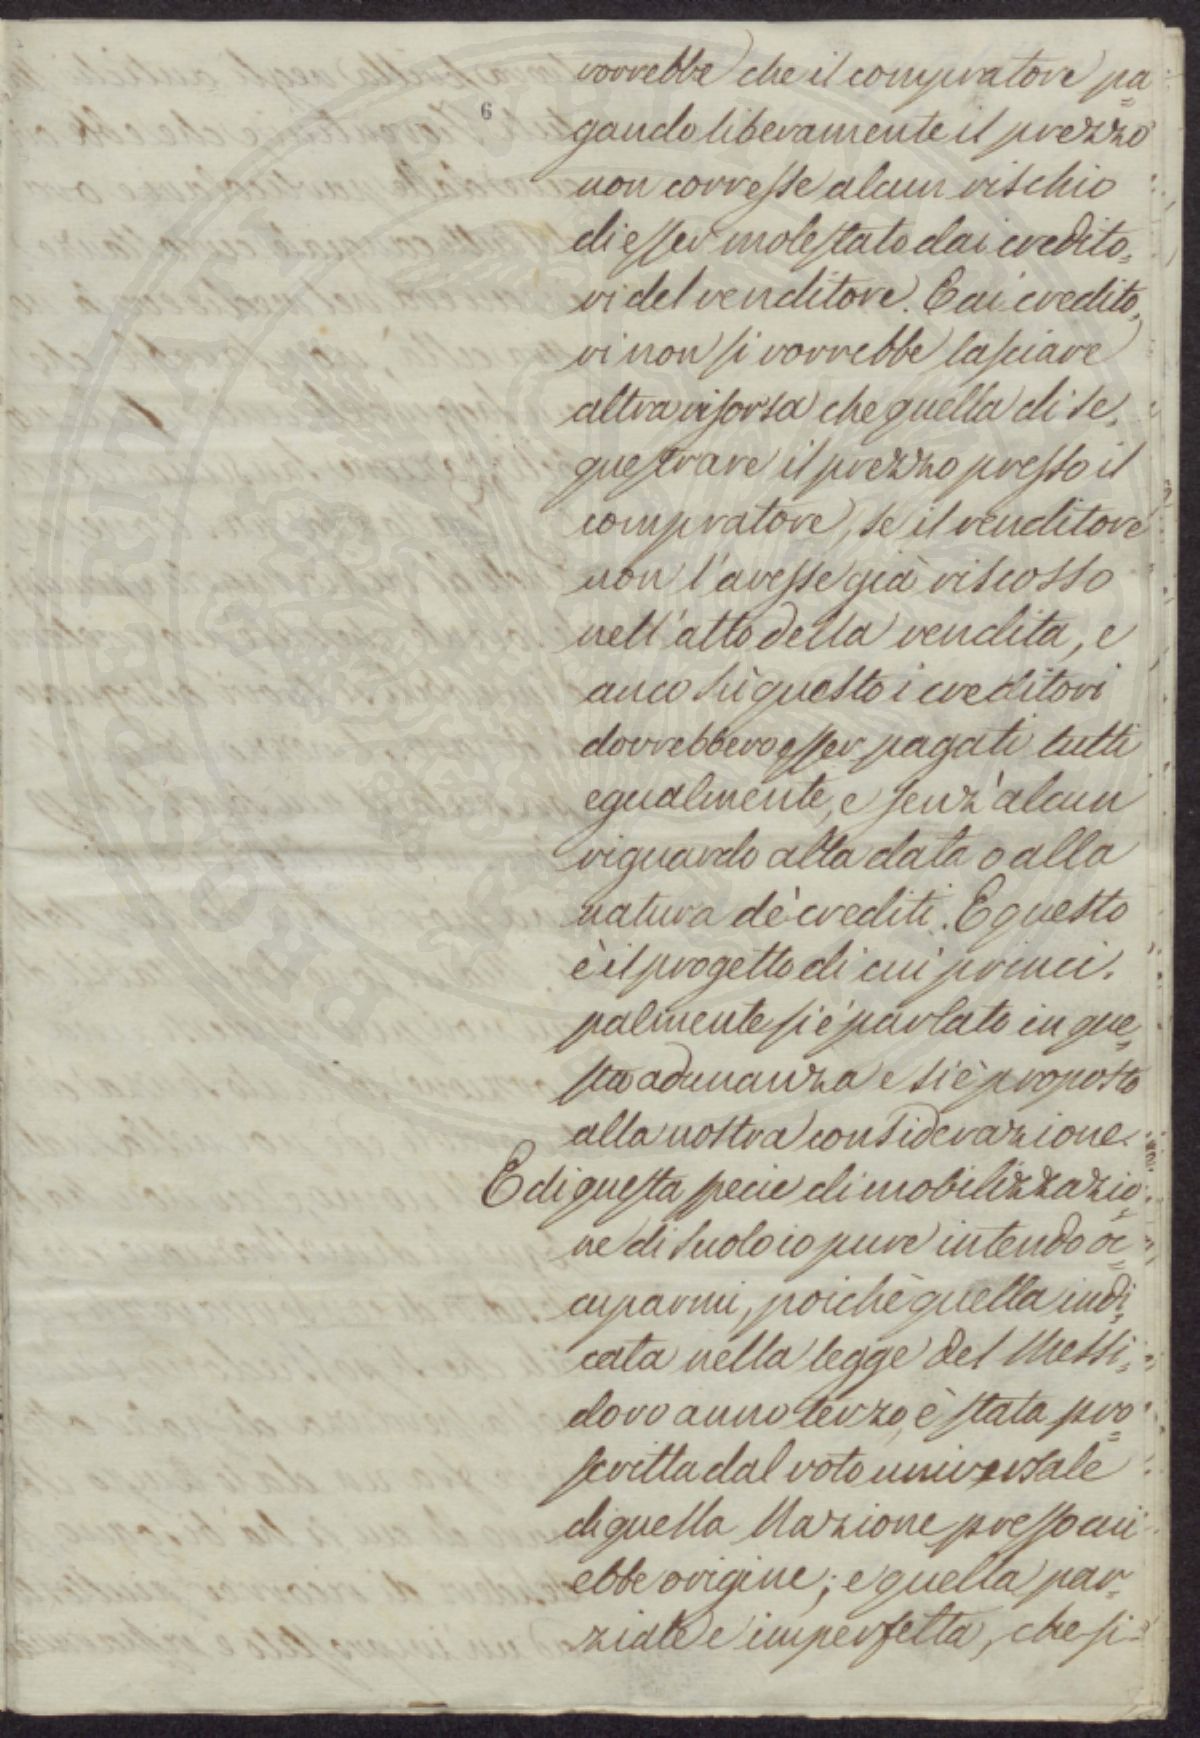 6
vorrebbe che il compratore pa=
gando liberamente il prezzo
non corresse alcun rischio
di esser molestato dai credito=
ri del venditore. E ai credito=
ri non si vorrebbe lasciare
altra risorsa che quella di se=
questrare il prezzo presso il
compratore, se il venditore
non l'avesse già riscosso
nell'atto della vendita, e
anco su questo i creditori
dovrebbero esser pagati tutti
egualmente, e senz'alcun
riguardo alla data o alla
natura de' crediti. E questo
è il progetto di cui princi=
palmente si è parlato in que=
sta adunanza e si è proposto
alla nostra considerazione.
E di questa specie di mobilizzazio=
ne di suolo io pure intendo oc=
cuparmi, poichè quella indi=
cata nella legge del Messi=
doro anno terzo, è stata pro=
scritta dal voto universale
di quella Nazione presso cui
ebbe origine; e quella par=
ziale e imperfetta, che si
PROSPERITATI PUBLICAE